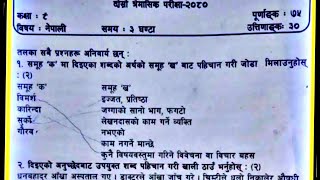 त्रैमासिक परीक्षा-२०८०
कक्षा : ८ पूर्णाङ्क : ७५
विषय : नेपाली समय : ३ घण्टा उत्तिर्णाङ्क : ३०
तलका सबै प्रश्नहरू अनिवार्य छन् :
१. समूह 'क' मा दिइएका शब्दको अर्थको समूह 'ख' बाट पहिचान गरी जोडा मिलाउनुहोस्
: (२)
समूह 'क' समूह 'ख'
विमर्श इज्जत, प्रतिष्ठा
कारिन्दा जग्गाको सानो भाग, फगटो
सुर्को लेखनदासको काम गर्ने व्यक्ति
गौरव नभएको
काम नगर्ने मान्छे
कुनै विषयवस्तुमा गरिने विवेचना वा विचार बहस
२. दिइएको अनुच्छेदबाट उपयुक्त शब्द पहिचान गरी खाली ठाउँ भर्नुहोस् : (२)
धनबहादुर आँखा अस्पताल गए। डाक्टरले आँखा जाँच गरे।